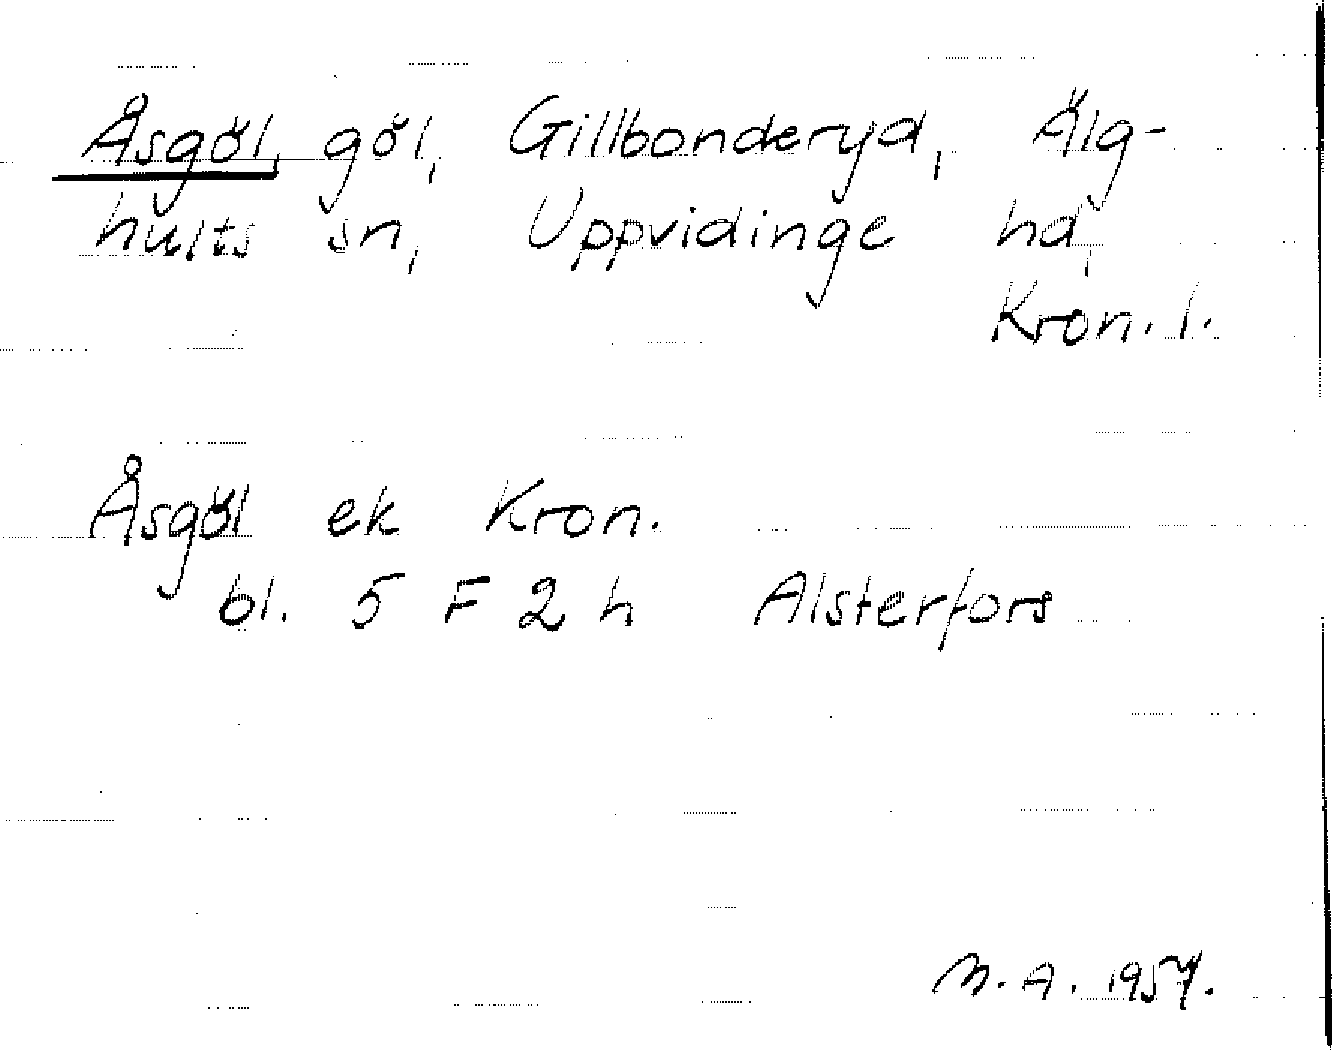 Åsgöl, göl, Gillbonderyd, Älg-
hults sn, Uppvidinge hd,
Kron. l.
Åsgöl ek Kron.
bl. 5 F 2 h Alsterfors
M. A. 1957.